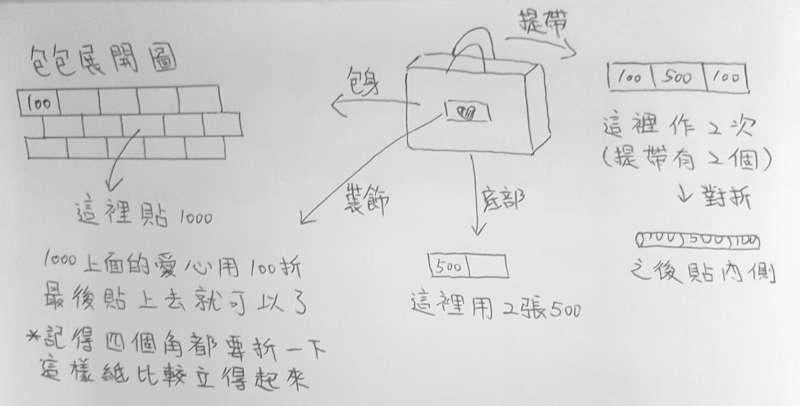 包包展開圖
100
這裡貼1000
1000上面的愛心用100折
最後貼上去就可以了
*記得四個角都要折一下
這樣紙比較立得起來
包身
裝飾
底部
500
這裡用2張500
提帶
100 500 100
這裡作2次
(提帶有2個)
對折
100 500 100
之後貼內側